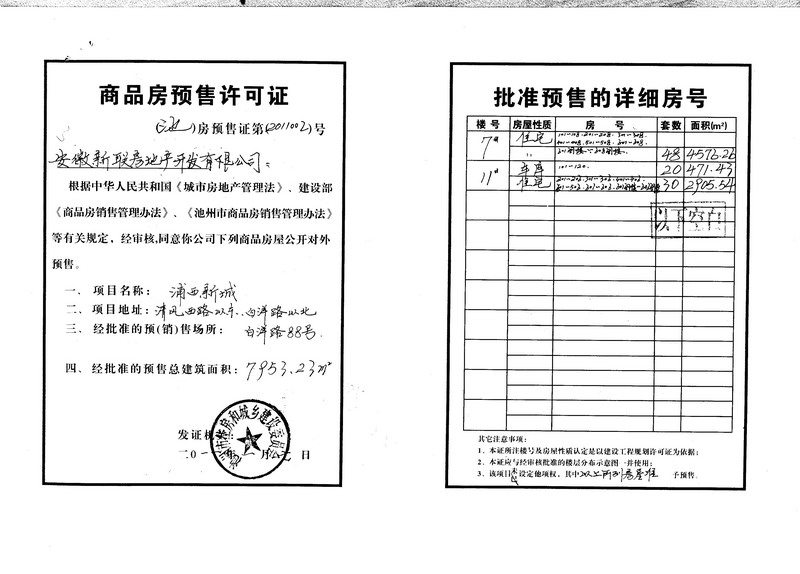 商品房预售许可证
(池)房预售证第(2011002)号
安徽新联房地产开发有限公司：
根据中华人民共和国《城市房地产管理法》、建设部
《商品房销售管理办法》、《池州市商品房销售管理办法》
等有关规定，经审核,同意你公司下列商品房屋公开对外
预售。
一、项目名称：浦西新城
二、项目地址：清风西路以东、白洋路以北
三、经批准的预(销)售场所：白洋路88号
四、经批准的预售总建筑面积：7953.23m²
发证机
二0一 月 日
批准预售的详细房号
楼号 房屋性质 房号 套数 面积(m²)
7# 住宅
48 4576.26
11# 车库 101-120 20 471.43
住宅 30 2905.54
以下空白
其它注意事项：
1、本证所注楼号及房屋性质认定是以建设工程规划许可证为依据；
2、本证应与经审核批准的楼层分布示意图一并使用；
3、该项目未设定他项权，其中以上所列房屋准予预售。